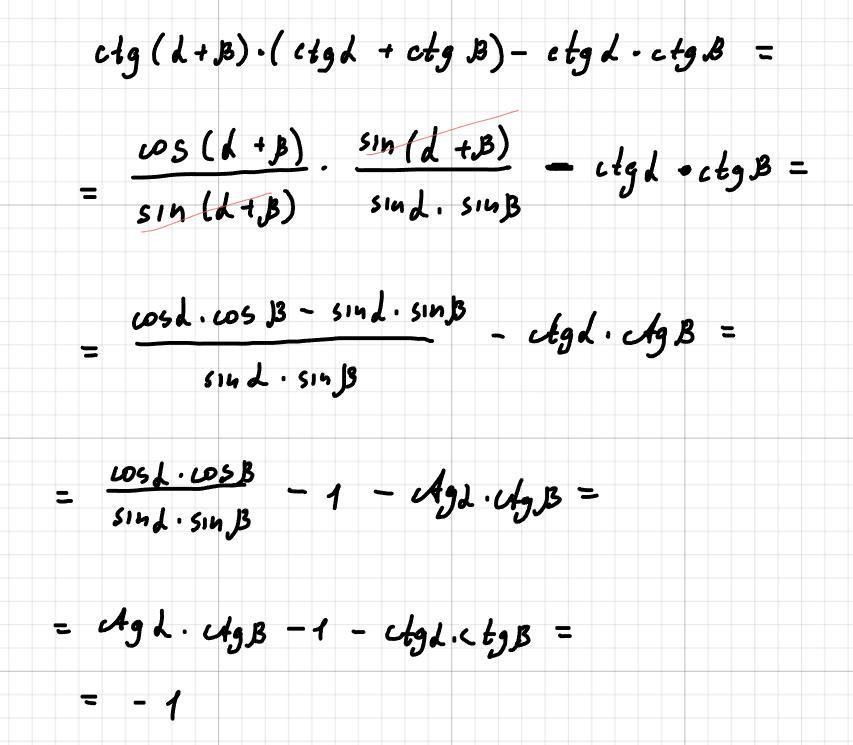 ctg(α+β)·(ctgα + ctgβ) − ctgα·ctgβ =
= cos(α+β)/sin(α+β) · sin(α+β)/(sinα·sinβ) − ctgα·ctgβ =
= (cosα·cosβ − sinα·sinβ)/(sinα·sinβ) − ctgα·ctgβ =
= (cosα·cosβ)/(sinα·sinβ) − 1 − ctgα·ctgβ =
= ctgα·ctgβ − 1 − ctgα·ctgβ =
= − 1